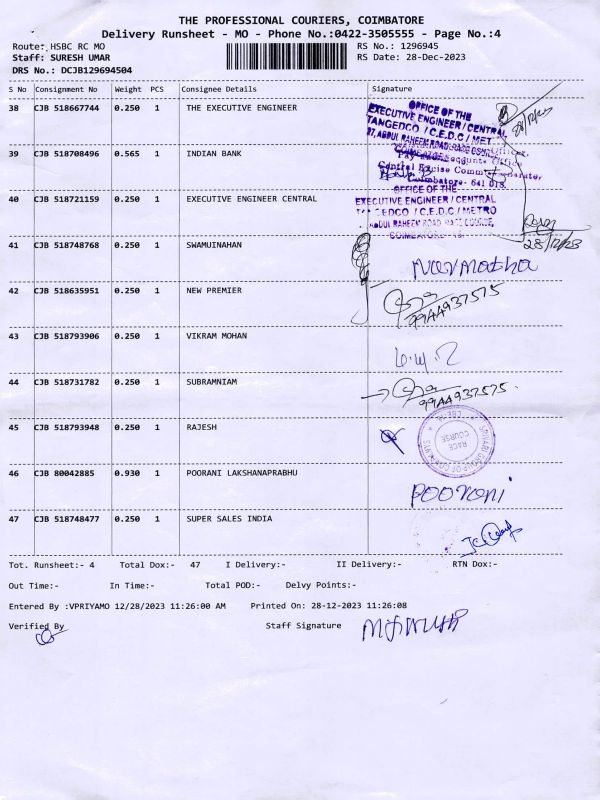 THE PROFESSIONAL COURIERS, COIMBATORE
Delivery Runsheet - MO - Phone No.:0422-3505555 - Page No.:4
Route: HSBC RC MO RS No.: 1296945
Staff: SURESH UMAR RS Date: 28-Dec-2023
DRS No.: DCJB129694504
S No Consignment No Weight PCS Consignee Details Signature
38 CJB 518667744 0.250 1 THE EXECUTIVE ENGINEER
OFFICE OF THE
EXECUTIVE ENGINEER / CENTRAL
TANGEDCO / C.E.D.C / MET
28/12/23
39 CJB 518708496 0.565 1 INDIAN BANK
Pay Accounts Office
Central Excise
Coimbatore- 641 018.
40 CJB 518721159 0.250 1 EXECUTIVE ENGINEER CENTRAL
OFFICE OF THE
EXECUTIVE ENGINEER / CENTRAL
C.E.D.C / METRO
ABDUL RAHEEM ROAD, RACE COURSE,
28/12/23
41 CJB 518748768 0.250 1 SWAMUINAHAN
Narmatha
42 CJB 518635951 0.250 1 NEW PREMIER
9944937575
43 CJB 518793906 0.250 1 VIKRAM MOHAN
44 CJB 518731782 0.250 1 SUBRAMNIAM
9944937575
45 CJB 518793948 0.250 1 RAJESH
RACE
COURSE
46 CJB 80042885 0.930 1 POORANI LAKSHANAPRABHU
POORONI
47 CJB 518748477 0.250 1 SUPER SALES INDIA
Tot. Runsheet:- 4 Total Dox:- 47 I Delivery:- II Delivery:- RTN Dox:-
Out Time:- In Time:- Total POD:- Delvy Points:-
Entered By :VPRIYAMO 12/28/2023 11:26:00 AM Printed On: 28-12-2023 11:26:08
Verified By Staff Signature